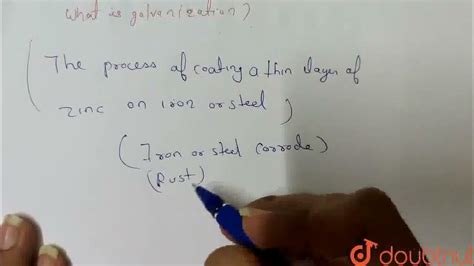 what is galvanization?
(The process of coating a thin layer of
zinc on iron or steel)
(Iron or steel corrode)
(Rust)
doubtnut